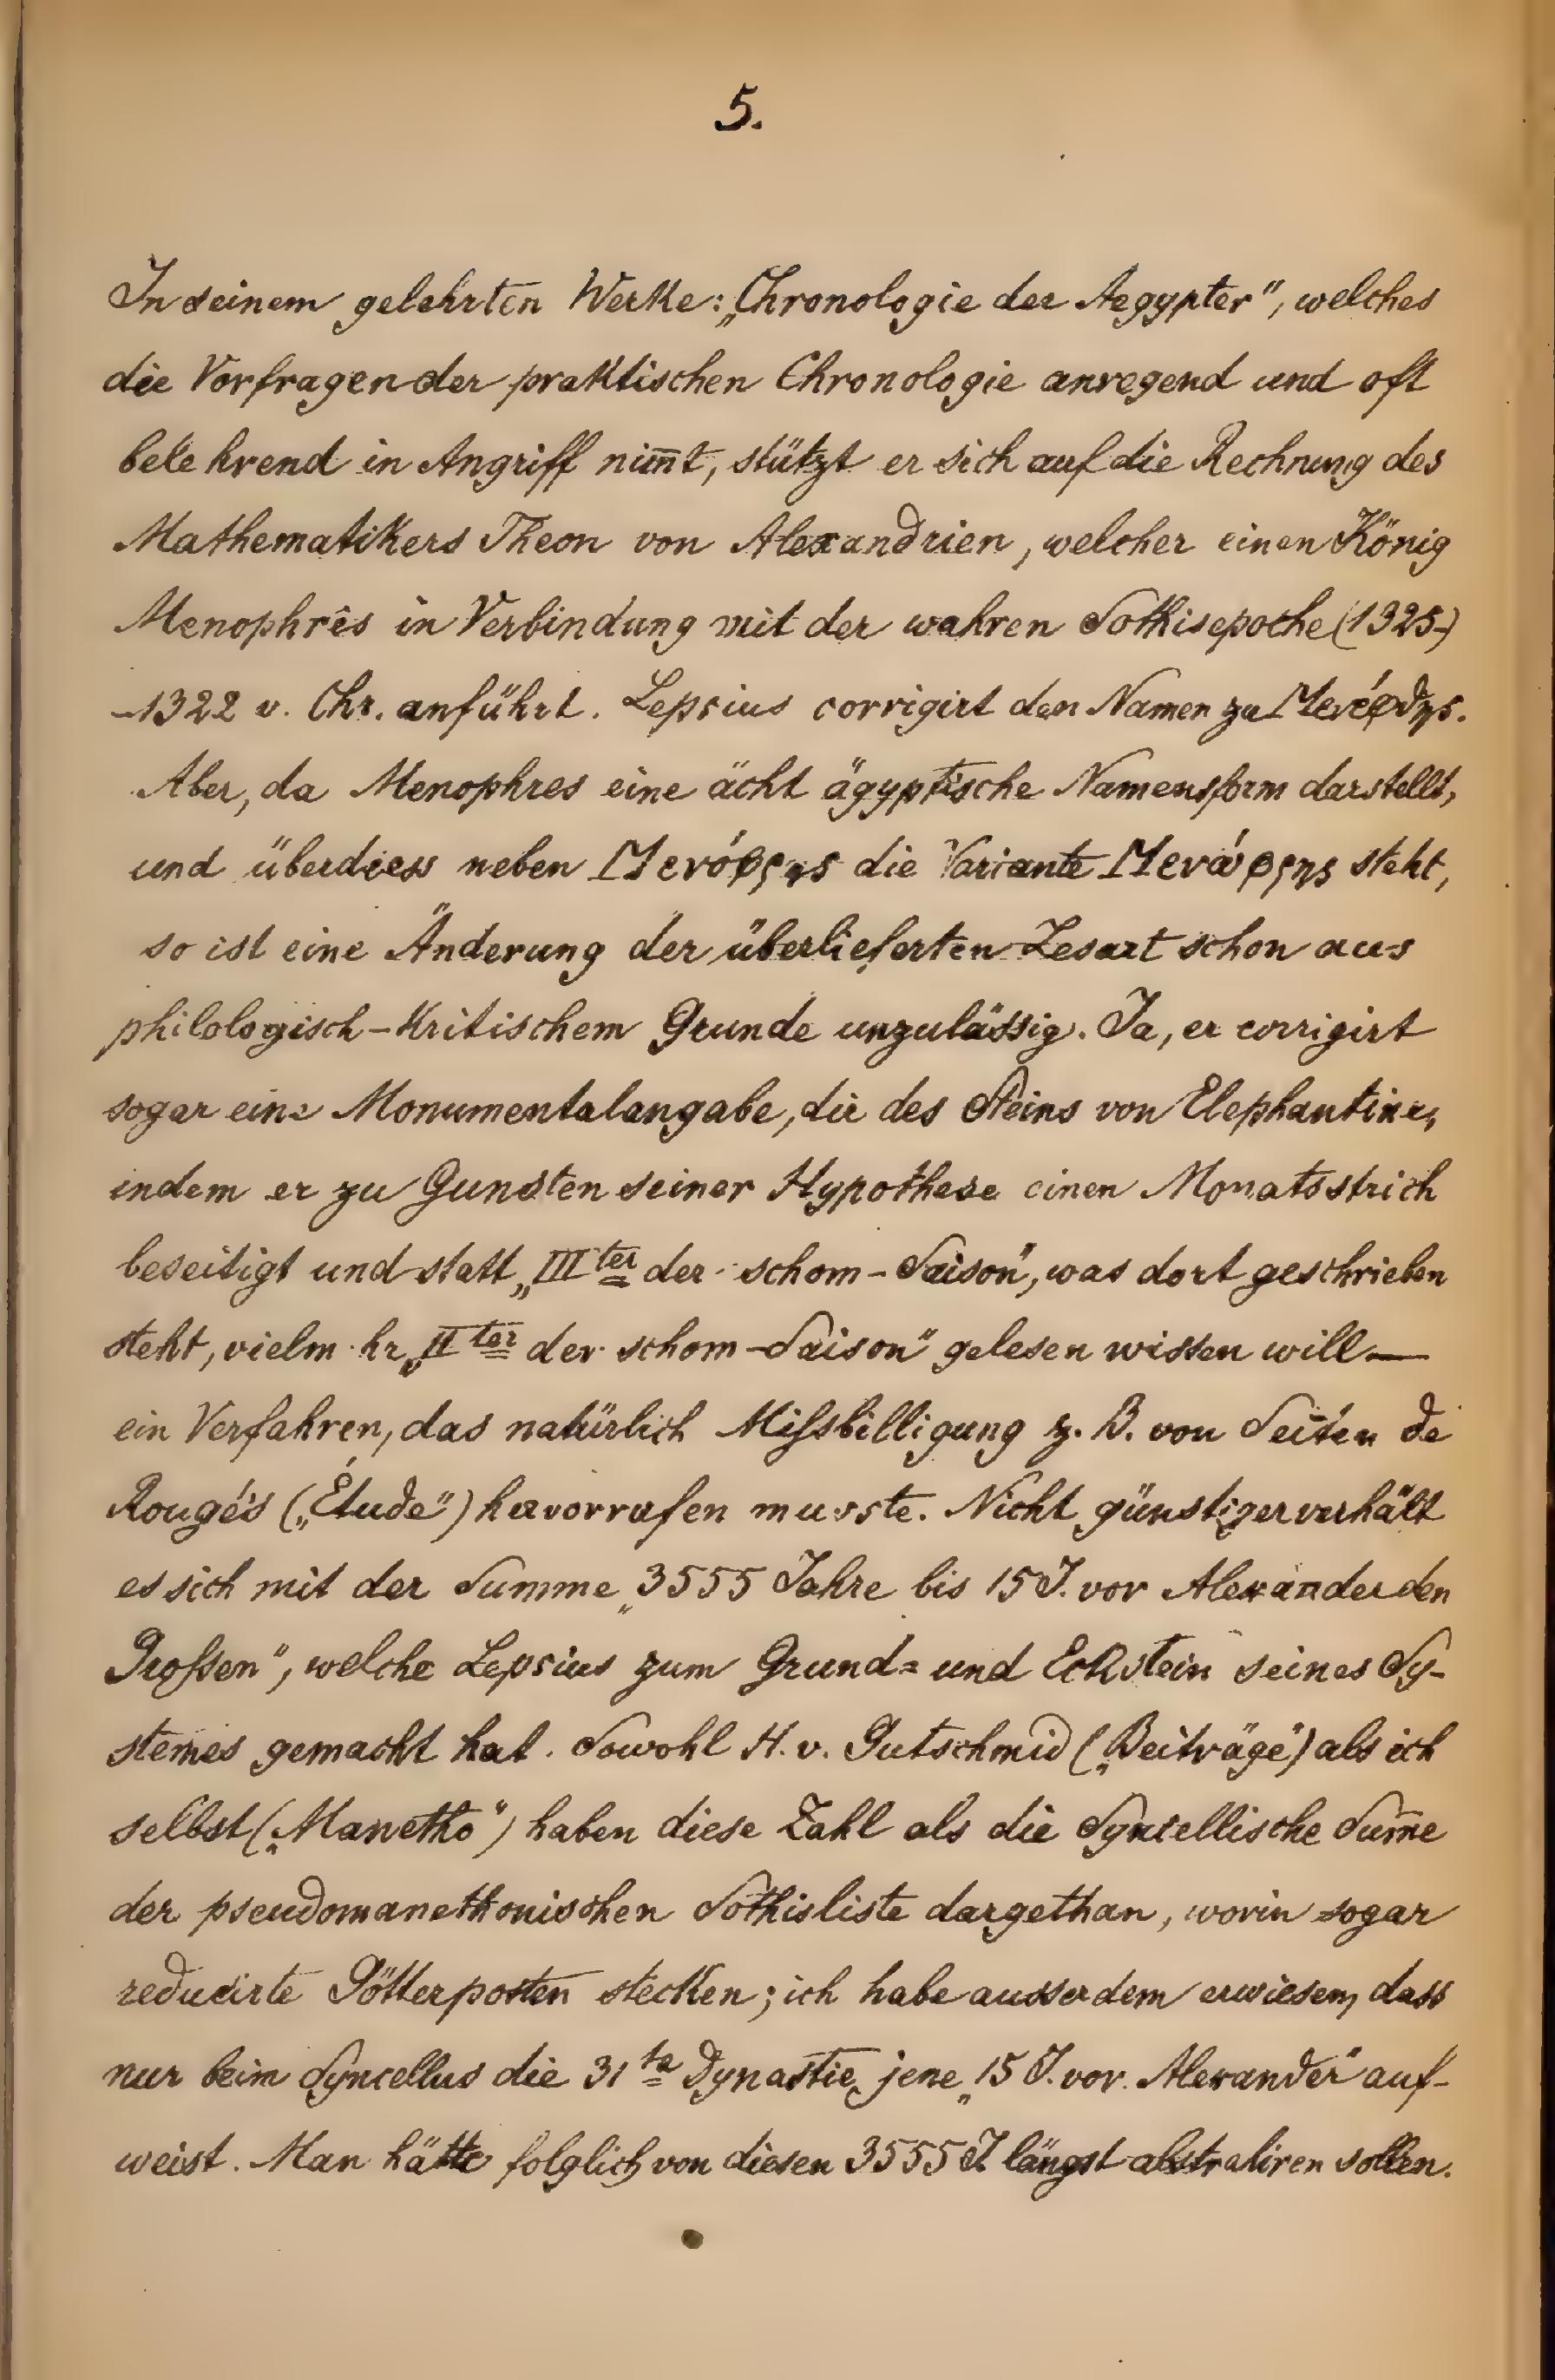 5.
In seinem gelehrten Werke: „Chronologie der Aegypter", welches
die Vorfragen der praktischen Chronologie anregend und oft
belehrend in Angriff nim̅t, stützt er sich auf die Rechnung des
Mathematikers Theon von Alexandrien, welcher einen König
Menophrês in Verbindung mit der wahren Sothisepoche (1325-)
-1322 v. Chr. anführt. Lepsius corrigirt den Namen zu Μενέφθης.
Aber, da Menophres eine ächt ägyptische Namensform darstellt,
und überdiess neben Μενόφρης die Variante Μενάφρης steht,
so ist eine Änderung der überlieferten Lesart schon aus
philologisch-kritischem Grunde unzulässig. Ja, er corrigirt
sogar eine Monumentalangabe, die des Steins von Elephantine,
indem er zu Gunsten seiner Hypothese einen Monatsstrich
beseitigt und statt „III ter der schom-Saison", was dort geschrieben
steht, vielm hr „II ter der schom-Saison" gelesen wissen will —
ein Verfahren, das natürlich Mißbilligung z. B. von Seiten de
Rougé's („Étude") hervorrufen musste. Nicht günstiger verhält
es sich mit der Summe „3555 Jahre bis 15 J. vor Alexander den
Großen", welche Lepsius zum Grund= und Eckstein seines Sy-
stemes gemacht hat. Sowohl H. v. Gutschmid („Beiträge") als ich
selbst („Manetho") haben diese Zahl als die Syncellische Sum̅e
der pseudomanethonischen Sothisliste dargethan, worin sogar
reducirte Götterposten stecken; ich habe ausserdem erwiesen, dass
nur beim Syncellus die 31 te Dynastie jene „15 J. vor Alexander" auf-
weist. Man hätte folglich von diesen 3555 J längst abstrahiren sollen.